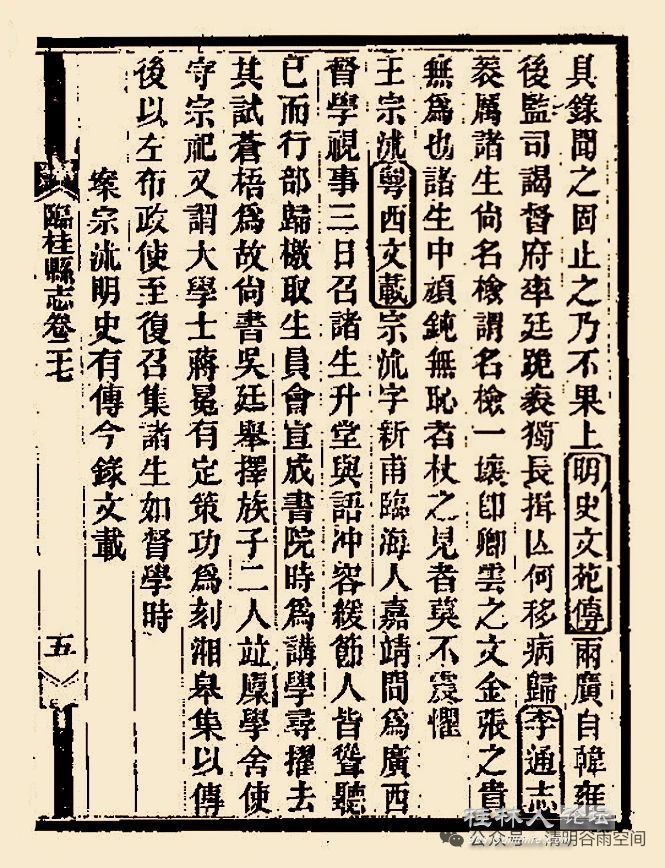 具錄聞之固止之乃不果上明史文苑傳兩廣自韓雍
後監司謁督府率廷跪袤獨長揖亾何移病歸李通志
袤厲諸生尙名檢謂名檢一壞卽卿雲之文金張之貴
無爲也諸生中頑鈍無恥者杖之見者莫不震懼
王宗沐粵西文載宗沐字新甫臨海人嘉靖間爲廣西
督學視事三日召諸生升堂與語冲容緩節人皆聳聽
已而行部歸檄取生員會宣成書院時爲講學尋擢去
其試蒼梧爲故尙書吳廷舉擇族子二人並廪學舍使
守宗祀又謂大學士蔣冕有定策功爲刻湘皋集以傳
後以左布政使至復召集諸生如督學時
案宗沐明史有傳今錄文載
臨桂縣志卷二七
五
桂林人论坛
公众号 · 清明谷雨空间